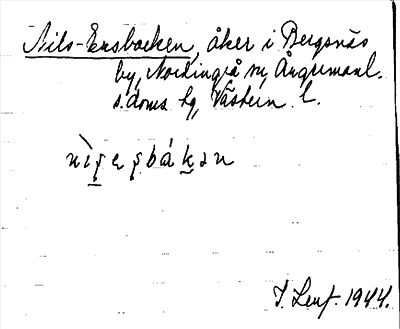 Nils-Ersbacken, åker i Bergsnäs
by, Nordingrå sn, Ångermanl.
s. doms. hg, Västern. l.
nìs̱e s̱báḵən
1944.